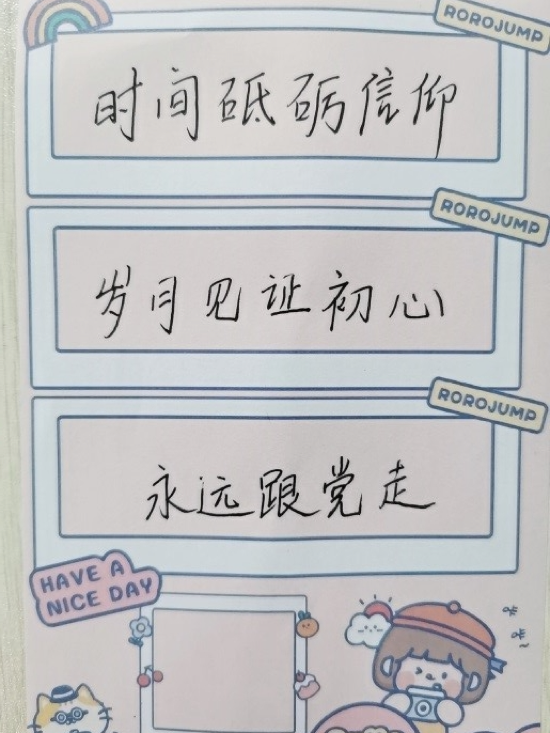 ROROJUMP
时间砥砺信仰
ROROJUMP
岁月见证初心
ROROJUMP
永远跟党走
HAVE A
NICE DAY
咔
咔~